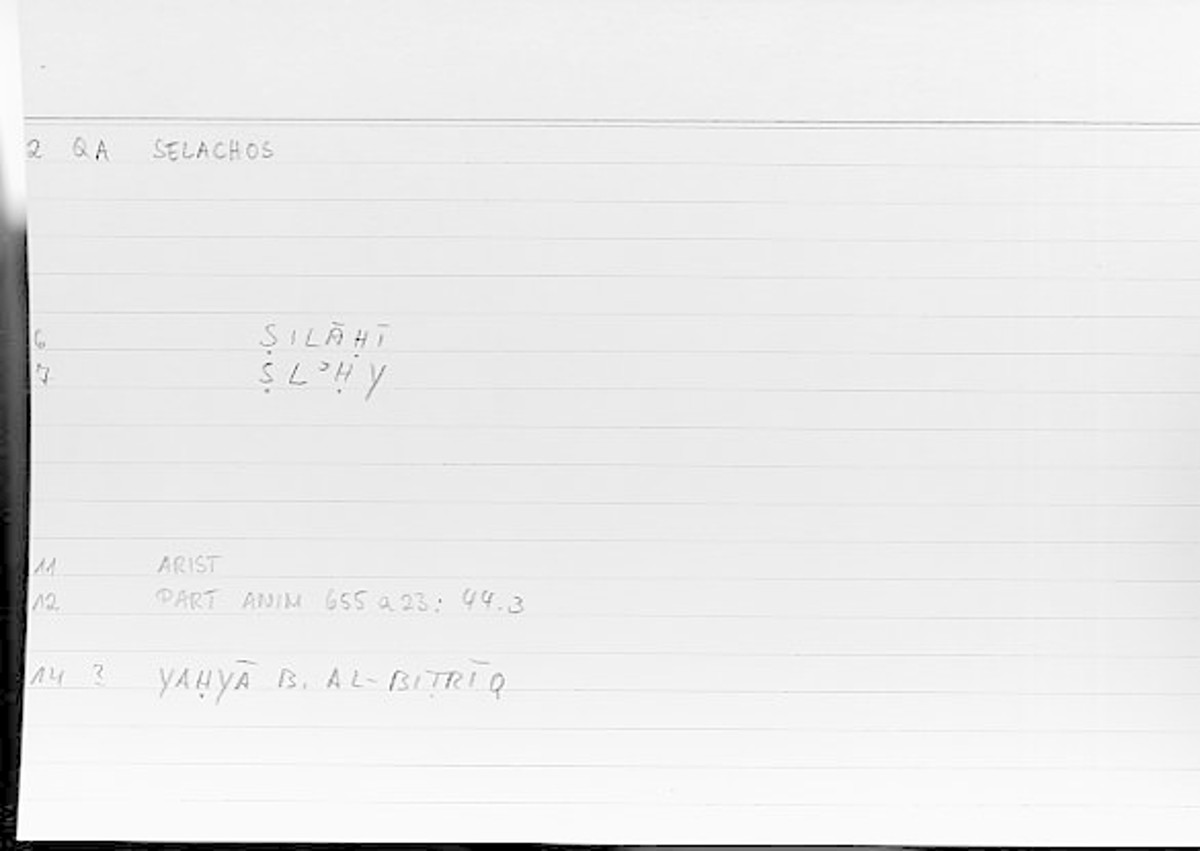 2 QA SELACHOS
6 ṢILĀḤĪ
7 ṢLʾḤY
11 ARIST
12 PART ANIM 655 a 23: 44.3
14 ? YAḤYĀ B. AL-BIṬRĪQ